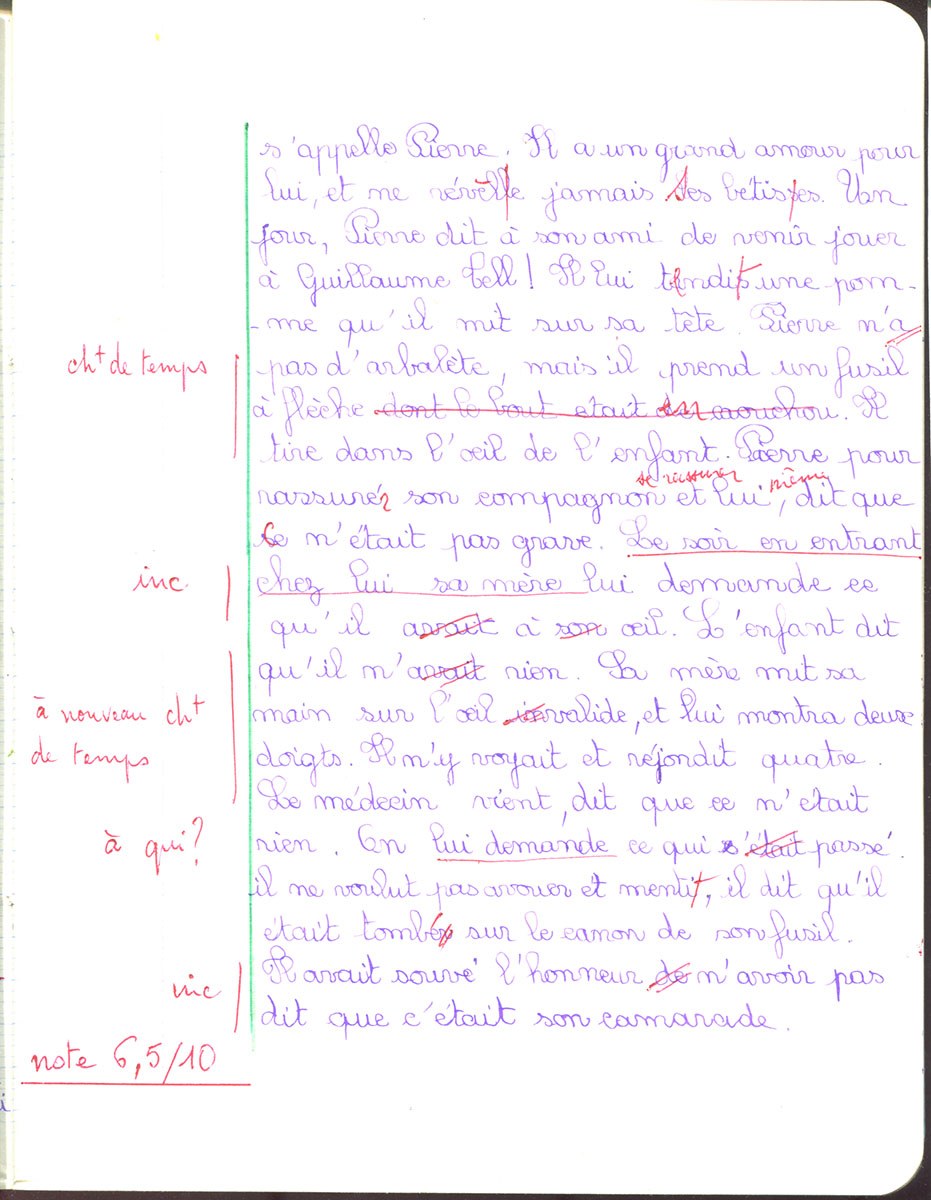 s'appelle Pierre. Il a un grand amour pour
lui, et ne révèle jamais ses bêtises. Un
jour, Pierre dit à son ami de venir jouer
à Guillaume Tell ! Il lui tendit une pom-
-me qu'il mit sur sa tête. Pierre n'a
cht de temps
pas d'arbalète, mais il prend un fusil
à flèche dont le bout etait en caouchou. Il
tire dans l'œil de l'enfant. Pierre pour
se rassurer même
rassurer son compagnon et lui, dit que
Ce n'était pas grave. Le soir en entrant
inc
chez lui sa mère lui demande ce
qu'il avait à son œil. L'enfant dit
qu'il n'avait rien. La mère mit sa
à nouveau cht
main sur l'œil invalide, et lui montra deux
de temps
doigts. Il n'y voyait et répondit quatre.
Le médecin vient, dit que ce n'était
à qui?
rien. On lui demande ce qui s'était passé.
il ne voulut pas avouer et mentit, il dit qu'il
était tombé sur le canon de son fusil.
Il avait sauvé l'honneur de n'avoir pas
inc
dit que c'était son camarade.
note 6,5/10